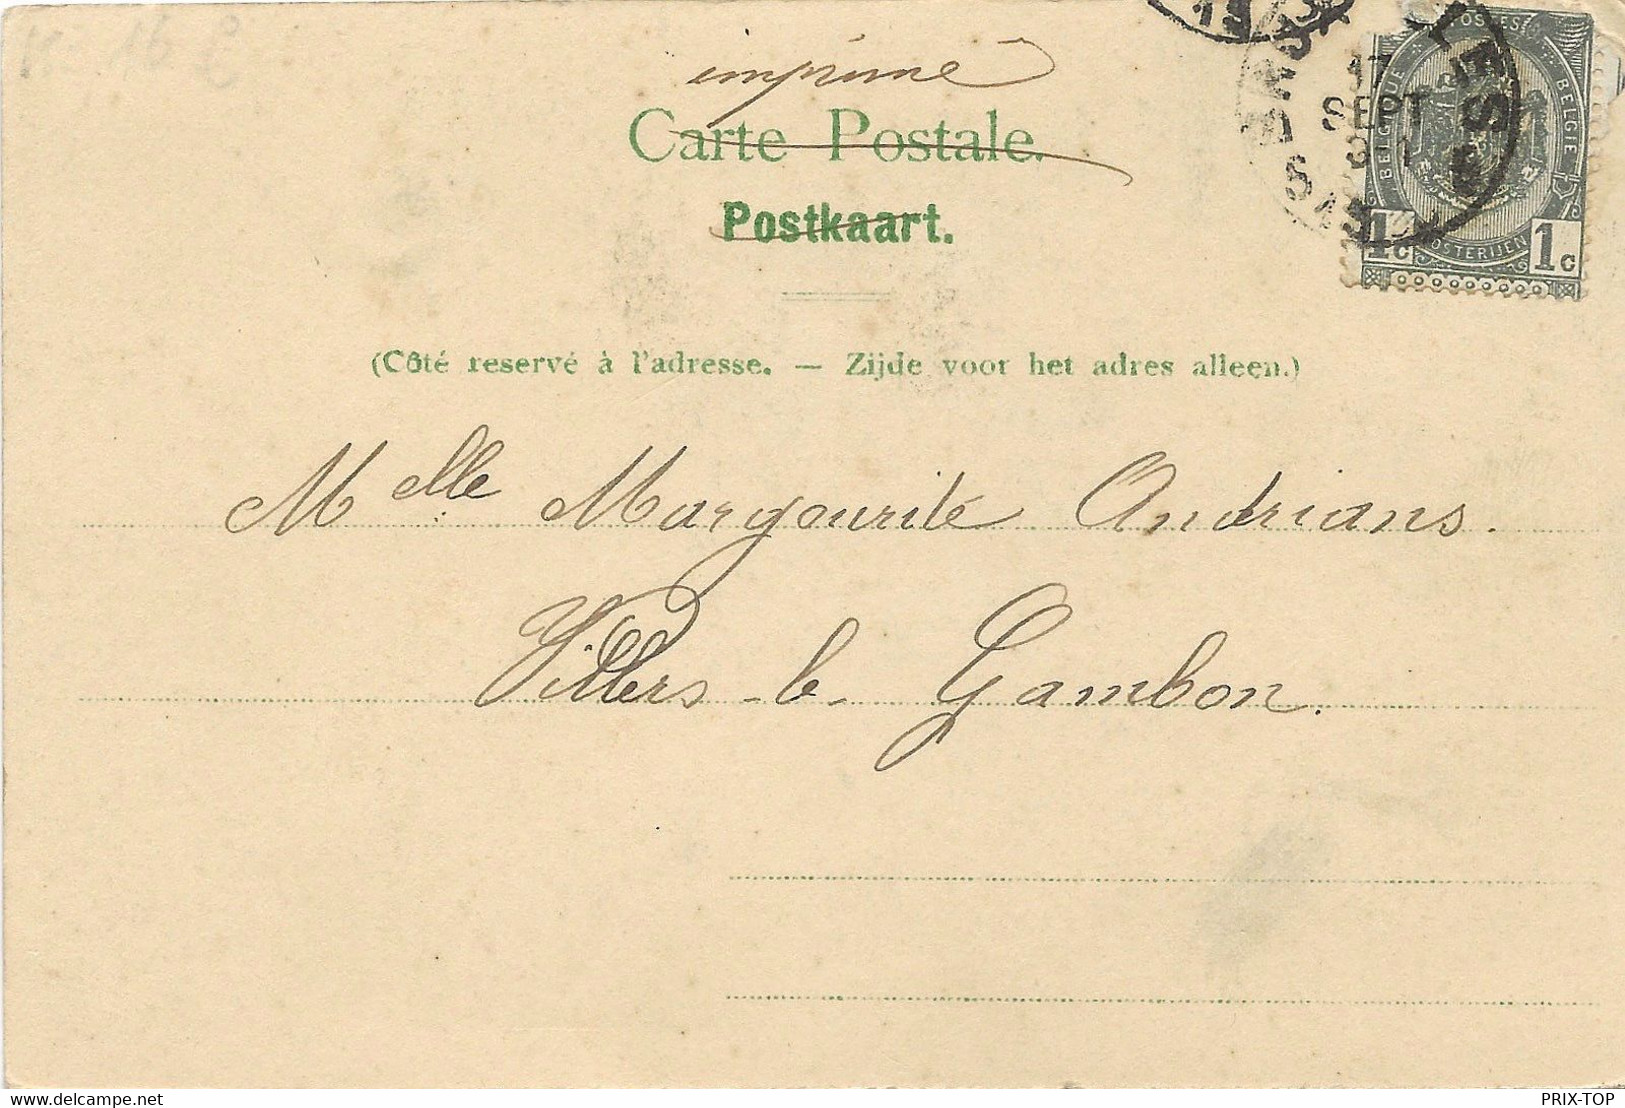 imprimé
Carte Postale.
Postkaart.
(Côté reservé à l'adresse. — Zijde voor het adres alleen.)
POSTES
BELGIQUE
BELGIE
POSTERIJEN
1c 1c
17
SEPT
Melle Margourite Andrians.
Villers-le-Gambon.
delcampe.net
PRIX-TOP